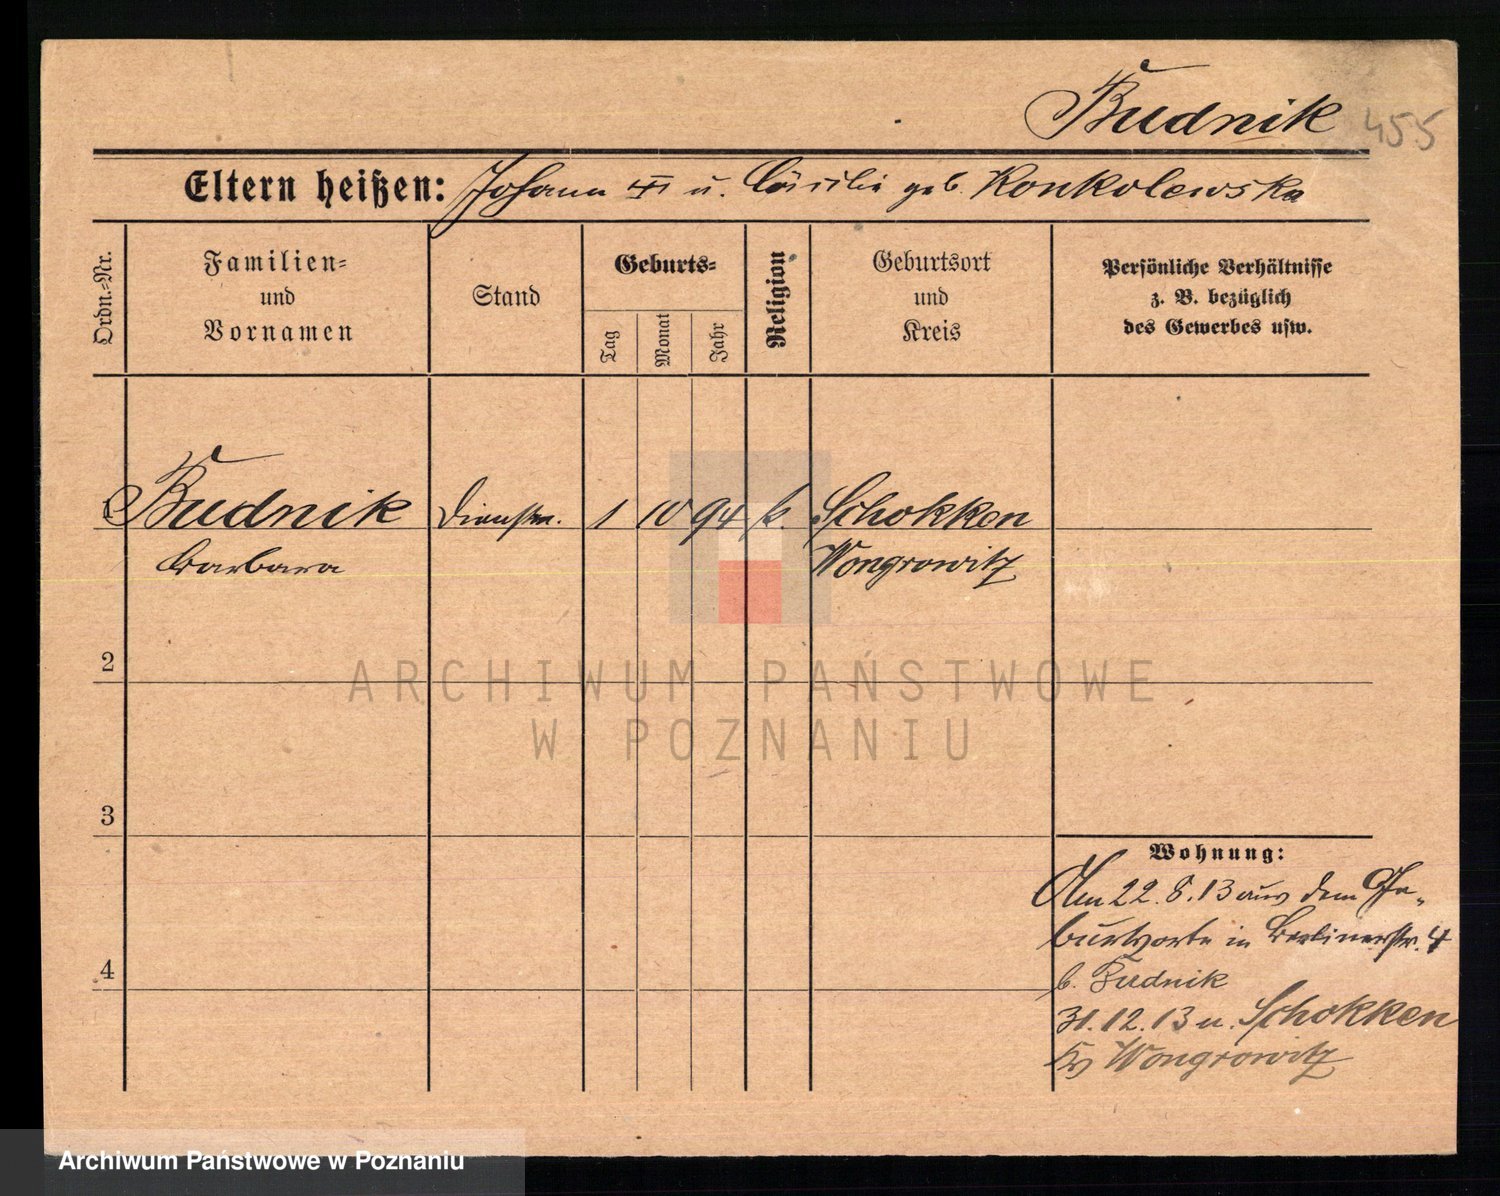 Budnik 455
Eltern heißen: Johann u. Cäcilie geb. Konkolewska
Ordn.-Nr.
Familien-
und
Vornamen
Stand
Geburts-
Tag
Monat
Jahr
Religion
Geburtsort
und
Kreis
Persönliche Verhältnisse
z. B. bezüglich
des Gewerbes usw.
Budnik Dienstm. 1 10 94 k. Schokken
Barbara Wongrowitz
2
3
4
Wohnung:
Am 22.8.13 aus dem Ge-
burtsorte in Berlinerstr. 4
b. Budnik
31.12.13 n. Schokken
Kr Wongrowitz
ARCHIWUM PAŃSTWOWE
W POZNANIU
Archiwum Państwowe w Poznaniu